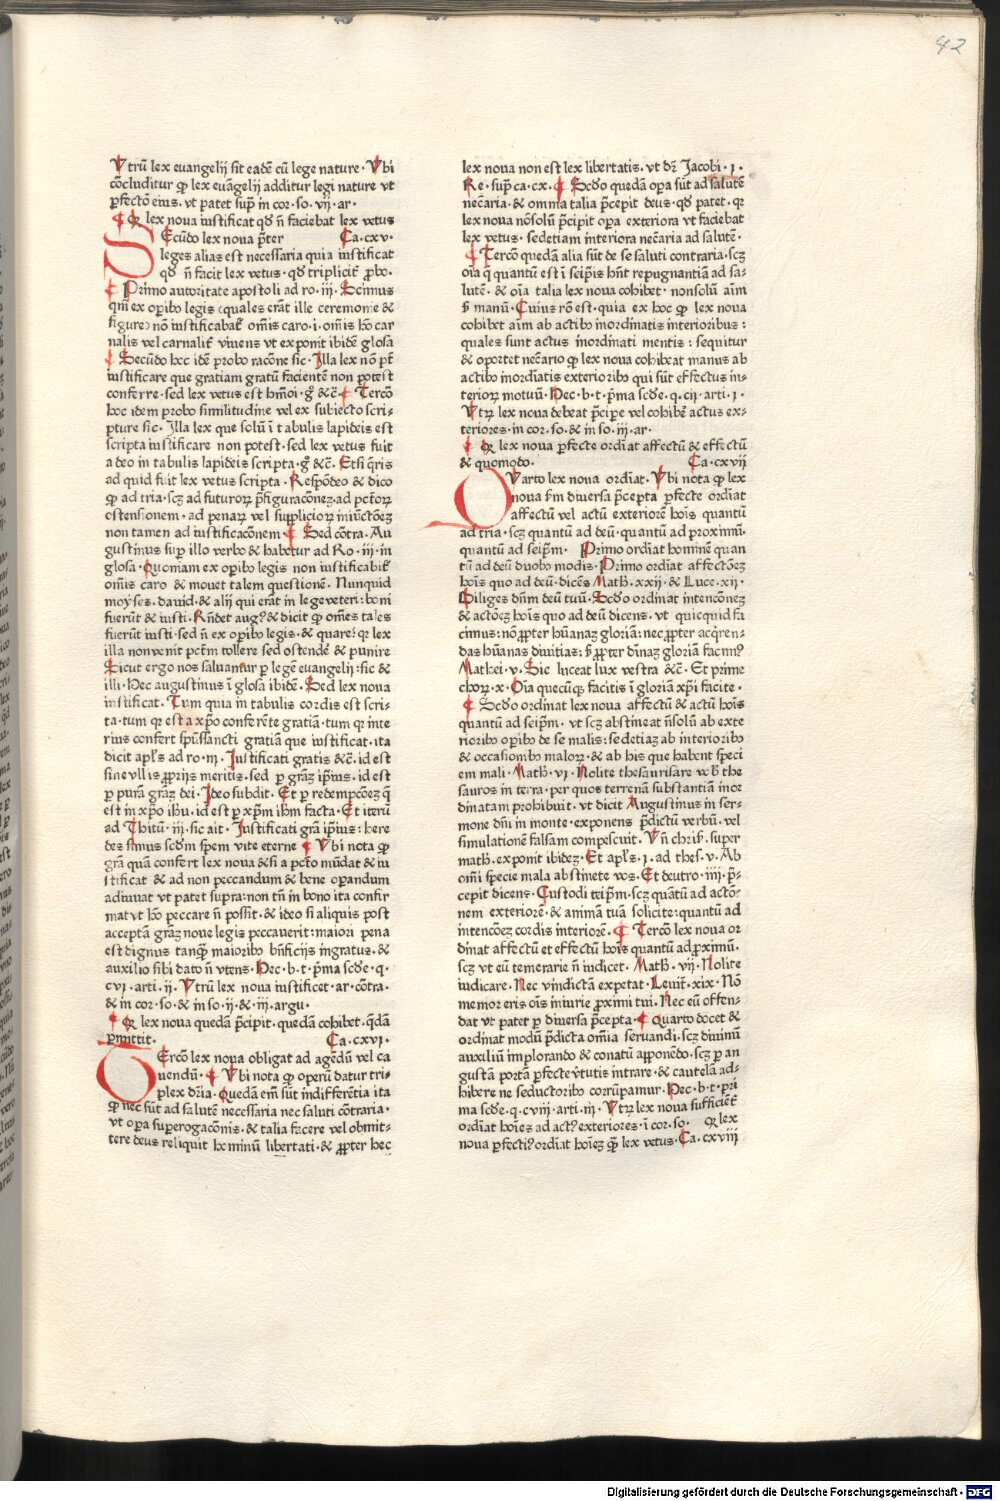 42
Vtrū lex euangelij sit eadē cū lege nature· Vbi
cōcluditur ꝙ lex euāgelij additur legi nature vt
ꝑfectō eius· vt patet supͣ in cor· so· vij· ar·
¶ Qꝛ lex noua iustificat qd̄ n̄ faciebat lex vetus
SEcūdo lex noua p̄ter Ca· cxv·
leges alias est necessaria quia iustificat
qd̄ n̄ facit lex vetus· qd̄ triplicit̄ ꝓbo·
¶ Primo autoritate apostoli ad ro· iij· Scimus
qm̄ ex oꝑibꝰ legis (quales erāt ille ceremonie &
figure) nō iustificabať om̄is caro· i· om̄is hō car
nalis vel carnalit̄ viuens vt exponit ibidē glosa
¶ Secūdo hoc idē probo racōne sic· Illa lex nō pōt
iustificare que gratiam gratū facientē non potest
conferre· sed lex vetus est hm̄oi· gͦ &c̄· ¶ Tercō
hoc idem probo similitudine vel ex subiecto scri⸗
pture sic· Illa lex que solū ī tabulis lapideis est
scripta iustificare non potest· sed lex vetus fuit
a deo in tabulis lapideis scripta· gͦ &c̄· Etsi q̄ris
ad quid fuit lex vetus scripta· Respōdeo & dico
ꝙ ad tria· scꝫ ad futuroꝝ p̄figuracōneꝫ· ad pctōꝝ
ostensionem· ad penaꝝ vel suppliciorꝝ iniūctōeꝫ
non tamen ad iustificacōnem ¶ Sed cōtra· Au
gustinus suꝑ illo verbo & habetur ad Ro· iij· in
glosa· Quoniam ex oꝑibꝰ legis non iustificabit̄
om̄is caro & mouet talem questionē· Nunquid
moyses· dauid· & alij qui erāt in lege veteri: boni
fuerūt & iusti· Rn̄det augꝰ & dicit ꝙ om̄es tales
fuerūt iusti· sed n̄ ex oꝑibꝰ legis· & quare: qꝛ lex
illa non venit pctm̄ tollere sed ostendē & punire
Sicut ergo nos saluamur ꝑ legē euangelij: sic &
illi· Hec augustinus ī glosa ibidē· Sed lex noua
iustificat· Tum quia in tabulis cordis est scri⸗
ta· tum qꝛ est a xp̄o conferēte gratiā· tum qꝛ inte
rius confert spūssancti gratiā que iustificat· ita
dicit apl̄s ad ro· iij· Iustificati gratis &c̄· id est
sine vllis ꝓprijs meritis· sed ꝑ grāꝫ ip̄ius· id est
ꝑ purā grāꝫ dei· Ideo subdit· Et ꝑ redempcōneꝫ q̄
est in xp̄o ihū· id est ꝑ xp̄m ihm̄ facta· Et iterū
ad Thitū· iij· sic ait· Iustificati grā ip̄ius: here
des simus scdm̄ spem vite eterne ¶ Vbi nota ꝙ
grā quā confert lex noua &si a pctō mūdat & iu
stificat & ad non peccandum & bene oꝑandum
adiuuat vt patet supra: non tn̄ in bono ita confir
mat vt hō peccare n̄ possit· & ideo si aliquis post
acceptā grāꝫ noue legis peccauerit: maiori pena
est dignus tanqꝫ maioribꝰ bn̄ficijs ingratus· &
auxilio sibi dato n̄ vtens· Hec· b· t· p̄ma scd̄e· q·
cvi· arti· ij· Vtrū lex noua iustificet· ar· cōtra·
& in cor· so· & in so· ij· & iij· argu·
¶ Qꝛ lex noua quedā p̄cipit· quedā cohibet· q̄dā
ꝑmittit· Ca· cxvi·
TErcō lex noua obligat ad agēdū vel ca
uendū· ¶ Vbi nota ꝙ operū datur tri⸗
plex dr̄ia· Quedā em̄ sūt īndifferētia ita
ꝙ nec sūt ad salutē necessaria nec saluti cōtraria·
vt oꝑa suꝑerogacōnis· & talia facere vel obmit⸗
tere deus reliquit hominū libertati· & ꝓpter hec
lex noua non est lex libertatis· vt dꝛ Iacobi· ı·
Re· supͣ ca· cx· ¶ Scdo quedā oꝑa sūt ad salutē
nec̄aria· & omnia talia p̄cepit deus· qd̄ patet· qꝛ
lex noua nōsolū p̄cipit oꝑa exteriora vt faciebat
lex vetus· sed etiam interiora nec̄aria ad salutē·
¶ Tercō quedā alia sūt de se saluti contraria· scꝫ
oīa q̄ quantū est ī seip̄is hn̄t repugnantiā ad sa⸗
lutē· & oīa talia lex noua cohibet· nonsolū aīm
sꝫ manū· Cuius rō est· quia ex hoc ꝙ lex noua
cohibet aīm ab actibꝰ inordinatis interioribus:
quales sunt actus inordinati mentis: sequitur
& oportet nec̄ario ꝙ lex noua cohibeat manus ab
actibꝰ inordīatis exterioribꝰ qui sūt effectus in⸗
terioꝝ motuū· Hec· b· t· p̄ma scd̄e· q· cij· arti· ı·
Vtꝝ lex noua debeat p̄cipe vel cohibē actus ex⸗
teriores· in cor· so· & in so· iij· ar·
¶ Qꝛ lex noua ꝑfecte ordīat affectū & effectū
& quomodo· Ca· cxvij
QVarto lex noua ordīat· Vbi nota ꝙ lex
noua sm̄ diuersa p̄cepta ꝑfecte ordīat
affectū vel actū exteriorē hoīs quantū
ad tria· scꝫ quantū ad deū· quantū ad proximū·
quantū ad seip̄m· Primo ordīat hominē quan
tū ad deū duobꝰ modis· Primo ordīat affectōeꝫ
hoīs quo ad deū· dicēs Math· xxij· & Luce· xij·
Diliges dn̄m deū tuū· Scdo ordinat intencōneꝫ
& actōeꝫ hoīs quo ad deū dicens· vt quicquid fa
cimus: nō ꝓpter hūanaꝫ gloriā: nec ꝓpter acq̄ren⸗
das hūanas diuitias: sꝫ ꝓpter diuīnaꝫ gloriā faciamꝰ
Mathei· v· Sic luceat lux vestra &c̄· Et prime
choꝝ· x· Oīa quecūqꝫ facitis ī gloriā xp̄i facite·
¶ Scdo ordinat lex noua affectū & actū hoīs
quantū ad seip̄m· vt scꝫ abstineat n̄solū ab exte
rioribꝰ oꝑibꝰ de se malis: sed etiaꝫ ab interioribꝰ
& occasionibꝰ maloꝝ· & ab his que habent speci
em mali· Math· vi· Nolite thesaurisare vob̄ the
sauros in terra· per quos terrenā substantiā inor
dinatam prohibuit· vt dicit Augustinus in ser⸗
mone dn̄i in monte· exponens p̄dictū verbū· vel
simulationē falsam compescuit· Vn̄ chrisꝰ· super
math· exponit ibideꝫ· Et apl̄s· ı· ad thes· v· Ab
om̄i specie mala abstinete vos· Et deutro· iiij· p̄⸗
cepit dicens· Custodi teip̄m· scꝫ quātū ad actō⸗
nem exteriorē· & animā tuā solicite: quantū ad
intencōeꝫ cordis interiorē· ¶ Tercō lex noua or
dinat affectū et effectū hoīs quantū ad ꝓximū·
scꝫ vt eū temerarie n̄ iudicet· Math· vij· Nolite
iudicare· Nec vindictā expetat· Leuit̄· xix· Nō
memor eris oīs iniurie ꝓximi tui· Nec eū offen⸗
dat vt patet ꝑ diuersa p̄cepta· ¶ Quarto docet &
ordinat modū p̄dicta om̄ia seruandi· scꝫ diuinū
auxiliū implorando & conatū apponēdo· scꝫ ꝑ an
gustā portā ꝑfecte v̄tutis intrare· & cautelā ad⸗
hibere ne seductoribꝰ corrūpamur· Hec· b· t· pri
ma scd̄e· q· cviij· arti· iij· Vtꝝ lex noua sufficiēť
ordiat hoīes ad actꝰ exteriores· ī cor· so· Qꝛ lex
noua ꝑfectiꝰ ordīat hoīeꝫ qͣꝫ lex vetus· Ca· cxviij
Digitalisierung gefördert durch die Deutsche Forschungsgemeinschaft - DFG